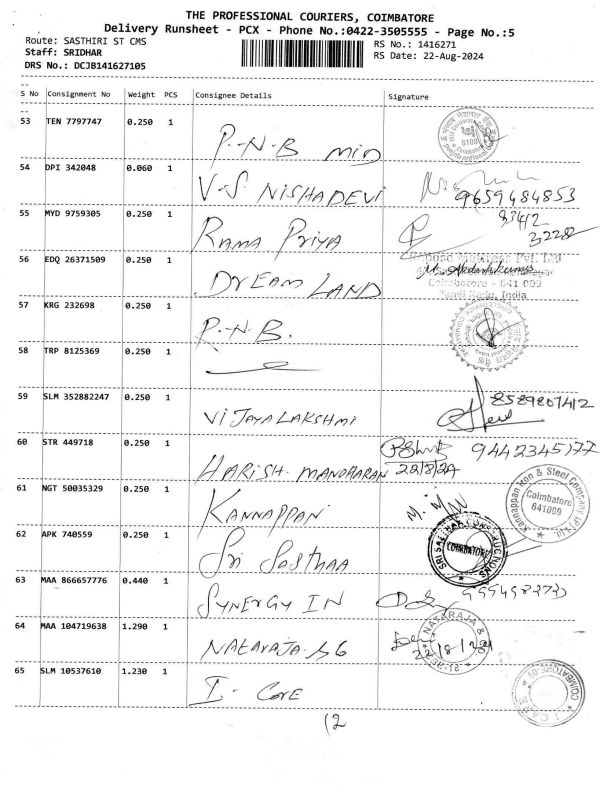 THE PROFESSIONAL COURIERS, COIMBATORE
Delivery Runsheet - PCX - Phone No.:0422-3505555 - Page No.:5
Route: SASTHIRI ST CMS
Staff: SRIDHAR
DRS No.: DCJB141627105
RS No.: 1416271
RS Date: 22-Aug-2024
S No Consignment No Weight PCS Consignee Details Signature
53 TEN 7797747 0.250 1 P-N-B MID
54 DPI 342048 0.060 1 V-S NISHADEVI 9659484853
55 MYD 9759305 0.250 1 RAMA PRIYA
56 EDQ 26371509 0.250 1 DREAM LAND
Coimbatore - 641 009
Tamil Nadu, India
57 KRG 232698 0.250 1 P.N.B.
58 TRP 8125369 0.250 1
59 SLM 352882247 0.250 1 VIJAYALAKSHMI 8589807412
60 STR 449718 0.250 1 HARISH MANOHARAN 22/8/24 9442345177
61 NGT 50035329 0.250 1 KANNAPPAN
Kannappan Iron & Steel Company (P) Ltd.
Coimbatore
641009
62 APK 740559 0.250 1 Sri Sasthaa
COIMBATORE
63 MAA 866657776 0.440 1 SYNERGY IN
64 MAA 104719638 1.290 1 NATARAJA &G
NATARAJA &
65 SLM 10537610 1.230 1 I- CORE
12